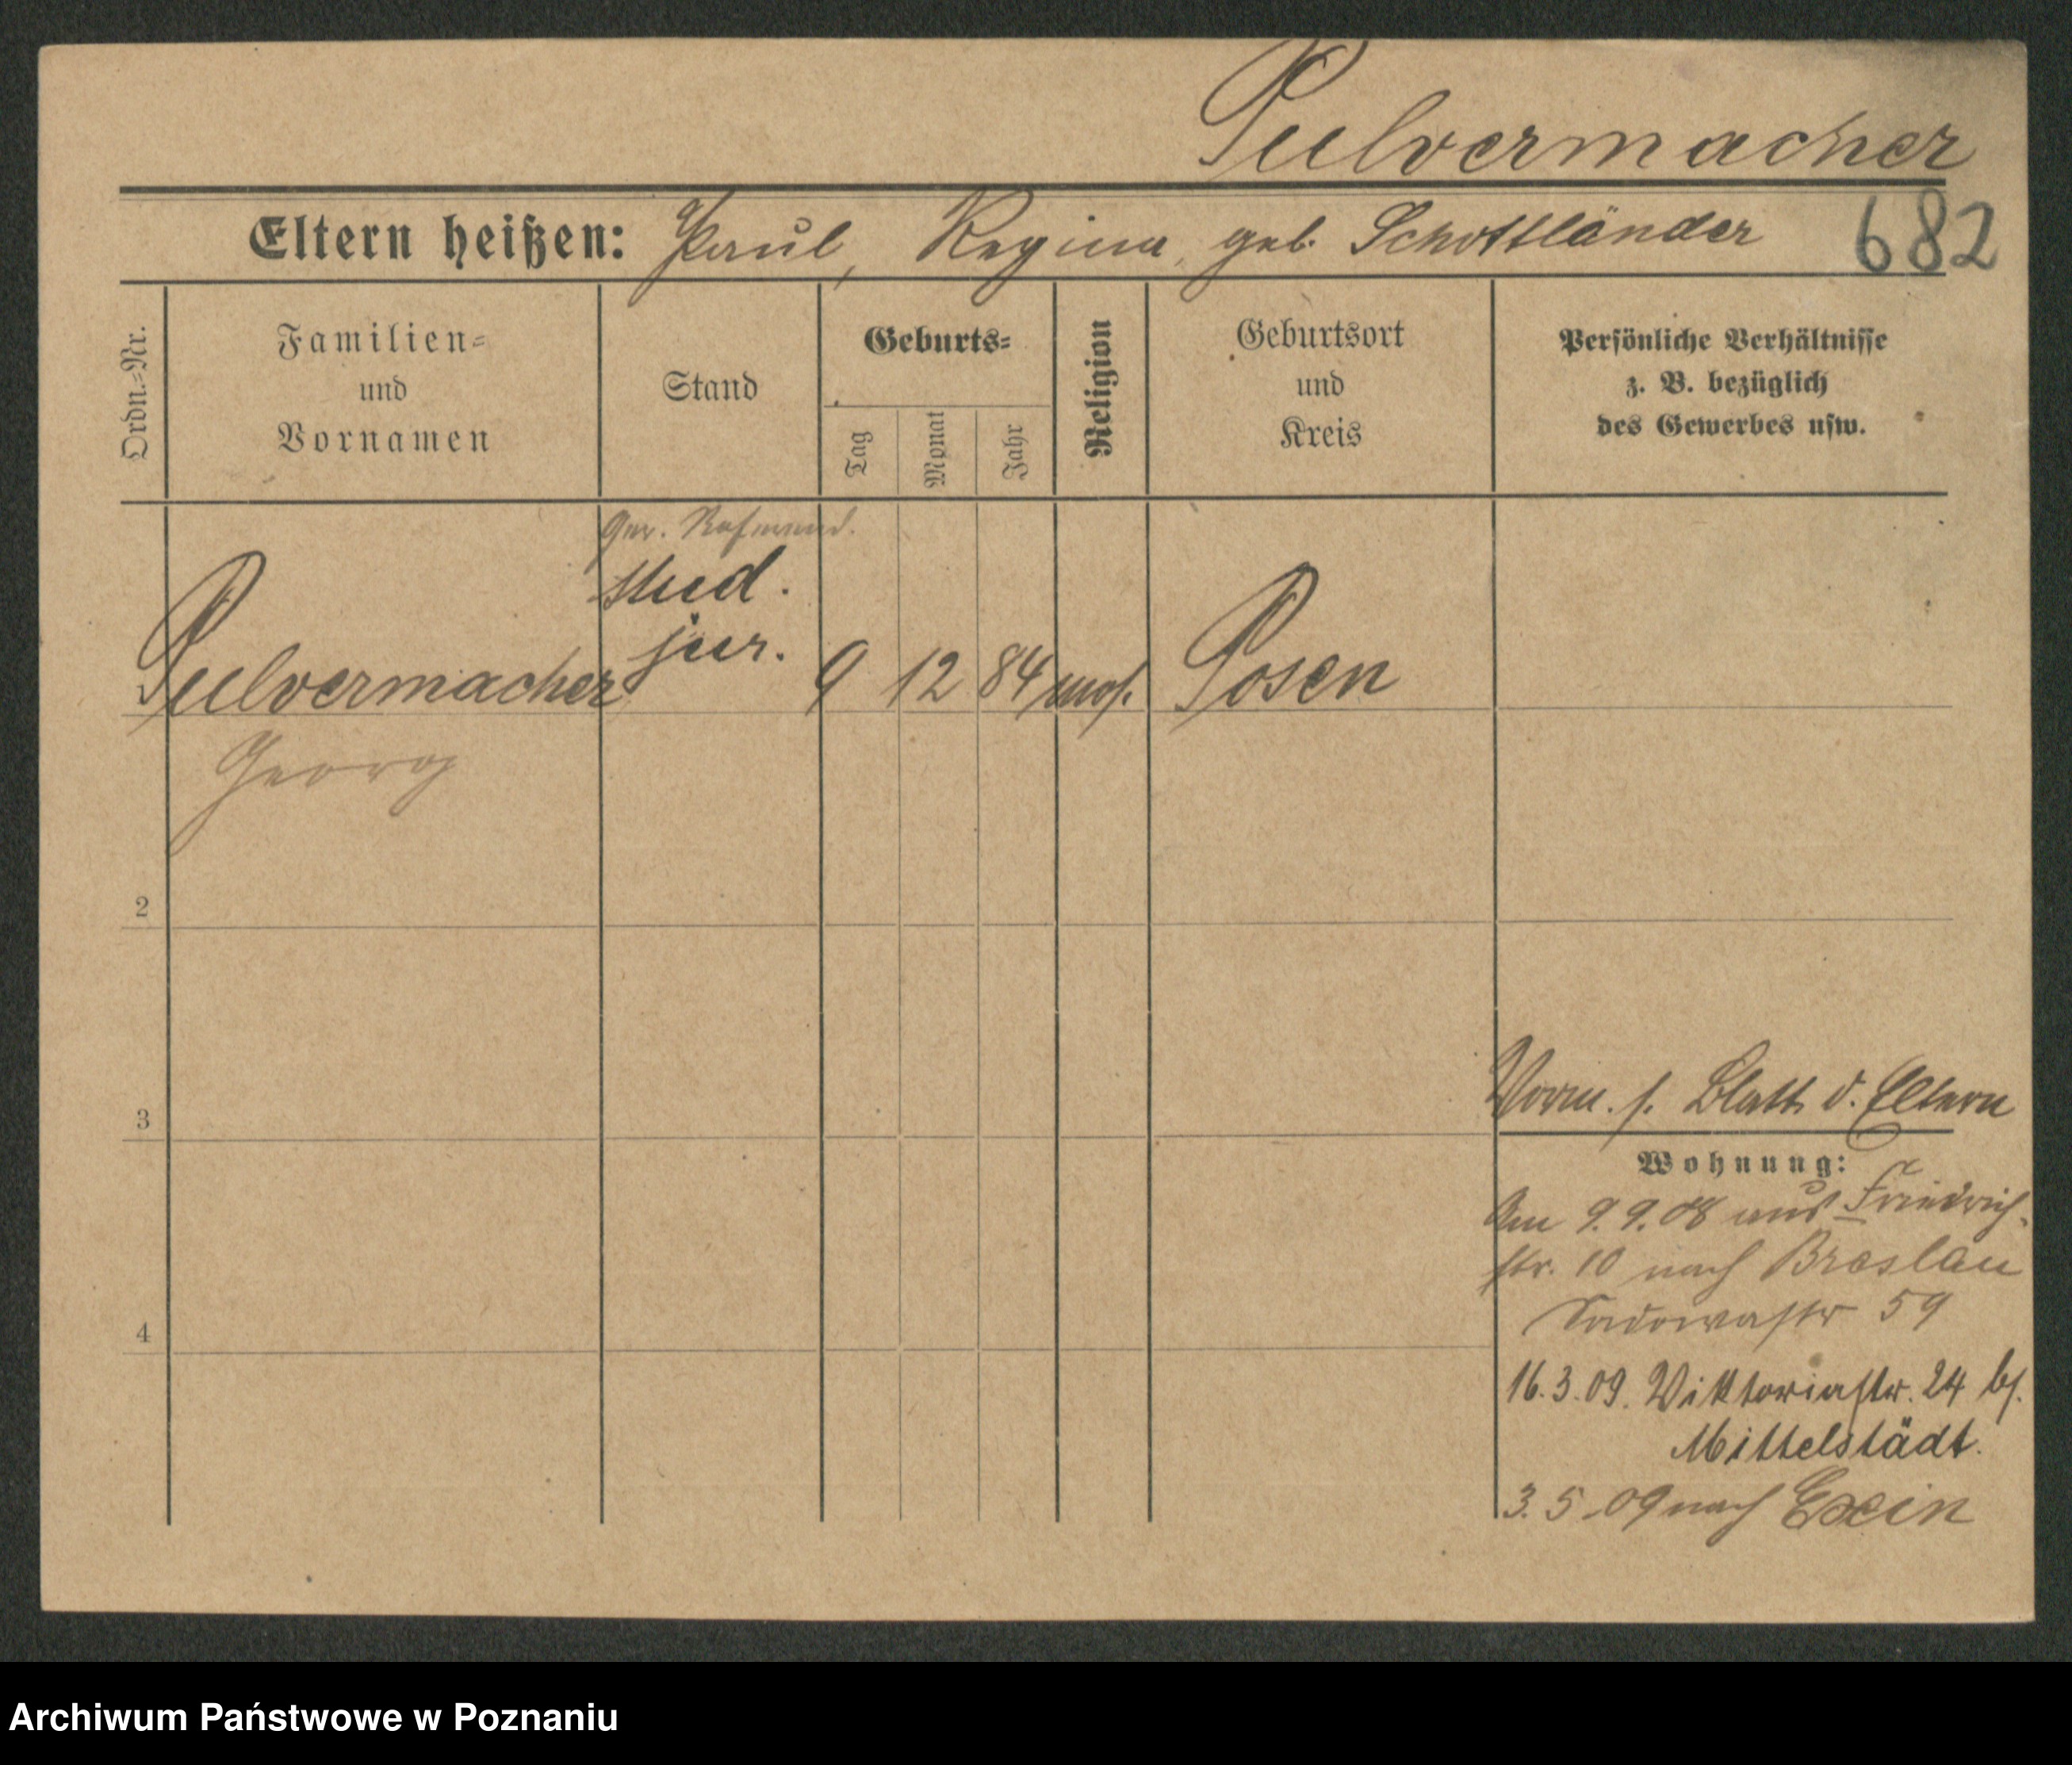 Pulvermacher
Eltern heißen: Paul, Regina, geb. Schottländer 682
Ordn.=Nr.
Familien=
und
Vornamen
Stand
Geburts=
Tag
Monat
Jahr
Religion
Geburtsort
und
Kreis
Persönliche Verhältnisse
z. B. bezüglich
des Gewerbes usw.
Ger.
stud.
jur.
Pulvermacher 9 12 84 mos. Posen
Georg
2
3
4
Vorm. s. Blatt d. Eltern
Wohnung:
Am 9.9.08 aus Friedrich-
str. 10 nach Breslau
Sadowastr 59
16.3.09. Viktoriastr. 24 bs.
Mittelstädt.
3.5.09 nach Exin
Archiwum Państwowe w Poznaniu